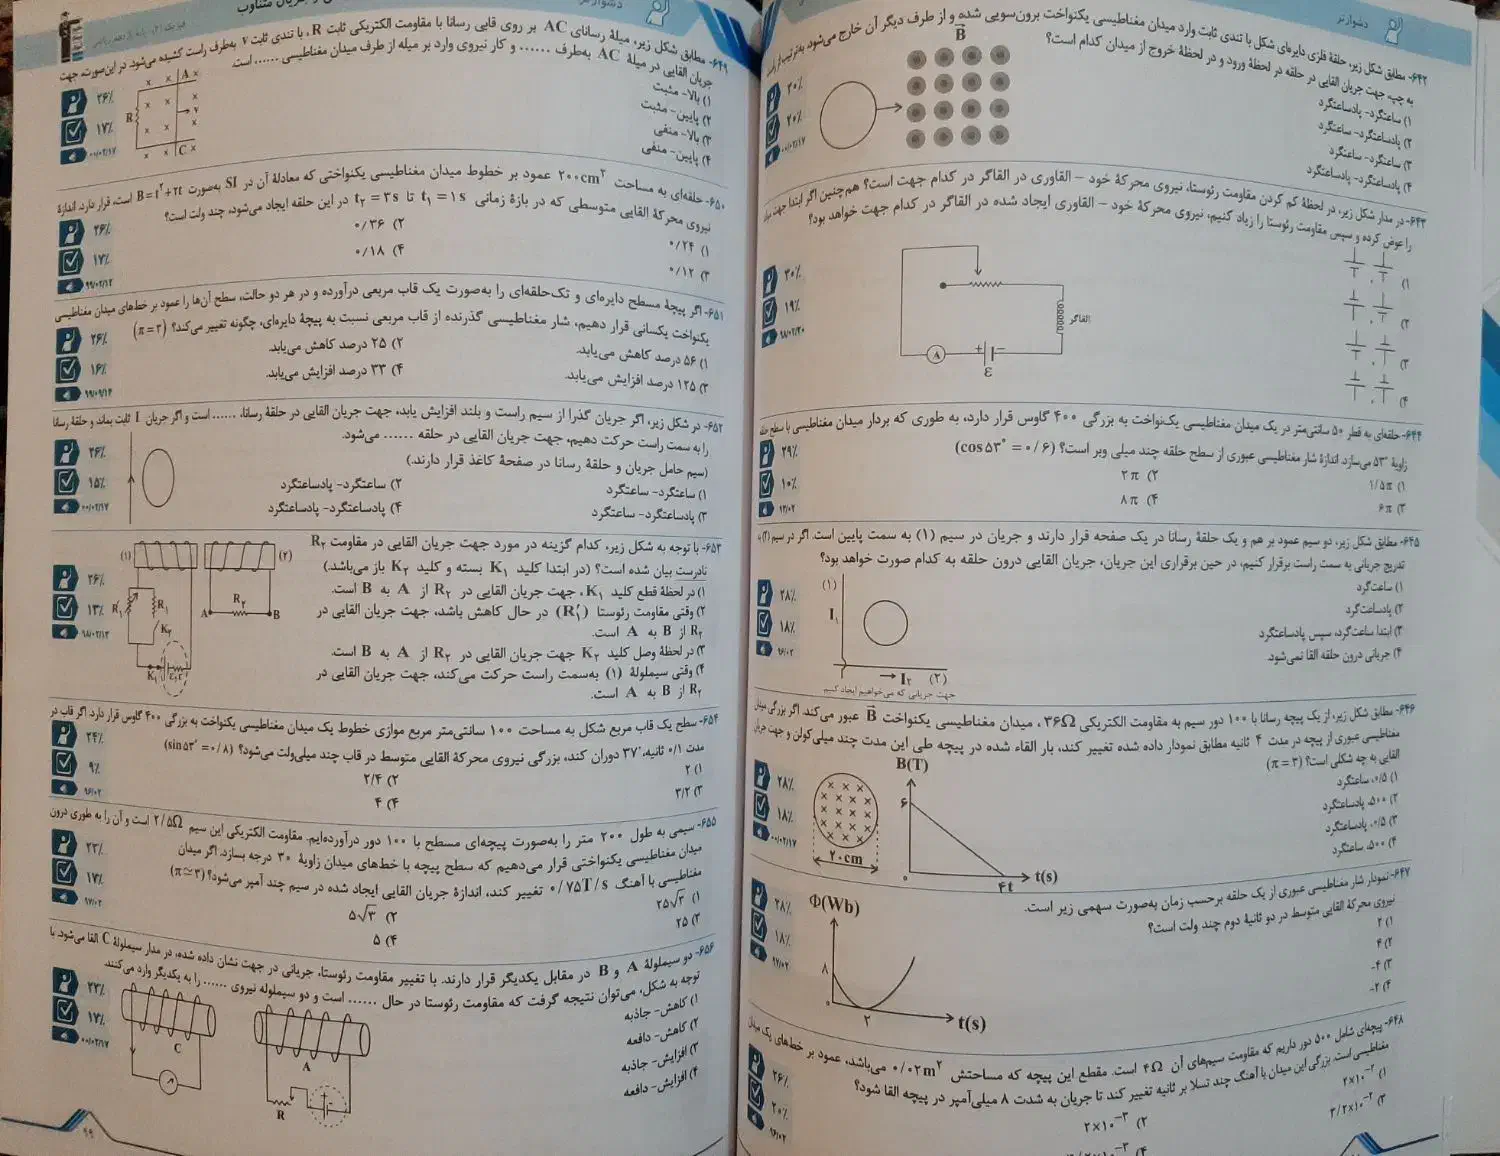 دشوارتر
۶۴۲- مطابق شکل زیر، حلقهٔ فلزی دایره‌ای شکل با تندی ثابت وارد میدان مغناطیسی یکنواخت برون‌سویی شده و از طرف دیگر آن خارج می‌شود. به‌ترتیب از راست
به چپ، جهت جریان القایی در حلقه در لحظهٔ ورود و در لحظهٔ خروج از میدان کدام است؟
B
۱) ساعتگرد- پادساعتگرد
۲) پادساعتگرد- ساعتگرد
۳) ساعتگرد- ساعتگرد
۴) پادساعتگرد- پادساعتگرد
۳۰٪
۲۰٪
۰۰/۰۲/۱۷
۶۴۳- در مدار شکل زیر، در لحظهٔ کم کردن مقاومت رئوستا، نیروی محرکهٔ خود - القاوری در القاگر در کدام جهت است؟ هم‌چنین اگر ابتدا جهت
را عوض کرده و سپس مقاومت رئوستا را زیاد کنیم، نیروی محرکهٔ خود - القاوری ایجاد شده در القاگر در کدام جهت خواهد بود؟
۱)
۲)
۳)
۴)
القاگر
A
+ −
ε
۳۰٪
۱۹٪
۹۸/۰۲/۲۰
۶۴۴- حلقه‌ای به قطر ۵۰ سانتی‌متر در یک میدان مغناطیسی یکنواخت به بزرگی ۴۰۰ گاوس قرار دارد، به طوری که بردار میدان مغناطیسی با سطح حلقه
زاویهٔ ۵۳° می‌سازد. اندازهٔ شار مغناطیسی عبوری از سطح حلقه چند میلی وبر است؟ (cos۵۳°=۰/۶)
۱) ۱/۵π
۲) ۲π
۳) ۶π
۴) ۸π
۲۹٪
۱۰٪
۹۲/۰۲
۶۴۵- مطابق شکل زیر، دو سیم عمود بر هم و یک حلقهٔ رسانا در یک صفحه قرار دارند و جریان در سیم (۱) به سمت پایین است. اگر در سیم (۲) به
تدریج جریانی به سمت راست برقرار کنیم، در حین برقراری این جریان، جریان القایی درون حلقه به کدام صورت خواهد بود؟
۱) ساعت‌گرد
۲) پادساعت‌گرد
۳) ابتدا ساعت‌گرد، سپس پادساعتگرد
۴) جریانی درون حلقه القا نمی‌شود.
(۱)
I۱
I۲ (۲)
جهت جریانی که می‌خواهیم ایجاد کنیم
۲۸٪
۱۸٪
۹۶/۰۲
۶۴۶- مطابق شکل زیر، از یک پیچه رسانا با ۱۰۰ دور سیم به مقاومت الکتریکی ۳۶Ω، میدان مغناطیسی یکنواخت B عبور می‌کند. اگر بزرگی میدان
مغناطیسی عبوری از پیچه در مدت ۴ ثانیه مطابق نمودار داده شده تغییر کند، بار القاء شده در پیچه طی این مدت چند میلی‌کولن و جهت جریان
القایی به چه شکلی است؟ (π=۳)
۱) ۰/۵، ساعتگرد
۲) ۵۰۰، پادساعتگرد
۳) ۰/۵، پادساعتگرد
۴) ۵۰۰، ساعتگرد
B(T)
۶
۰
۴
t(s)
۲۰cm
۲۸٪
۱۸٪
۰۰/۰۲/۱۷
۶۴۷- نمودار شار مغناطیسی عبوری از یک حلقه برحسب زمان به‌صورت سهمی زیر است.
نیروی محرکهٔ القایی متوسط در دو ثانیهٔ دوم چند ولت است؟
۱) ۲
۲) ۴
۳) ۴-
۴) ۲-
Φ(Wb)
۸
۰
۲
t(s)
۲۸٪
۱۸٪
۹۷/۰۲
۶۴۸- پیچه‌ای شامل ۵۰۰ دور داریم که مقاومت سیم‌های آن ۴Ω است. مقطع این پیچه که مساحتش ۰/۰۲m² می‌باشد، عمود بر خط‌های یک میدان
مغناطیسی است. بزرگی این میدان با آهنگ چند تسلا بر ثانیه تغییر کند تا جریان به شدت ۸ میلی‌آمپر در پیچه القا شود؟
۱) ۲×۱۰⁻²
۲) ۲×۱۰⁻³
۳) ۳/۲×۱۰⁻²
۲۶٪
۲۰٪
۹۶/۰۲
دشوارتر
۶۴۹- مطابق شکل زیر، میلهٔ رسانای AC بر روی قابی رسانا با مقاومت الکتریکی ثابت R، با تندی ثابت v به‌طرف راست کشیده می‌شود. در این‌صورت، جهت
جریان القایی در میلهٔ AC به‌طرف ...... و کار نیروی وارد بر میله از طرف میدان مغناطیسی ...... است.
۱) بالا- مثبت
۲) پایین- مثبت
۳) بالا- منفی
۴) پایین- منفی
A
R
v
C
۲۶٪
۱۷٪
۰۰/۰۲/۱۷
۶۵۰- حلقه‌ای به مساحت ۲۰۰cm² عمود بر خطوط میدان مغناطیسی یکنواختی که معادلهٔ آن در SI به‌صورت B=t²+۲t است، قرار دارد. اندازهٔ
نیروی محرکهٔ القایی متوسطی که در بازهٔ زمانی t۱=۱s تا t۲=۳s در این حلقه ایجاد می‌شود، چند ولت است؟
۱) ۰/۲۴
۲) ۰/۳۶
۳) ۰/۱۲
۴) ۰/۱۸
۲۶٪
۱۷٪
۹۹/۰۲/۱۲
۶۵۱- اگر پیچهٔ مسطح دایره‌ای و تک‌حلقه‌ای را به‌صورت یک قاب مربعی درآورده و در هر دو حالت، سطح آن‌ها را عمود بر خط‌های میدان مغناطیسی
یکنواخت یکسانی قرار دهیم، شار مغناطیسی گذرنده از قاب مربعی نسبت به پیچهٔ دایره‌ای، چگونه تغییر می‌کند؟ (π=۳)
۱) ۵۶ درصد کاهش می‌یابد.
۲) ۲۵ درصد کاهش می‌یابد.
۳) ۱۲۵ درصد افزایش می‌یابد.
۴) ۳۳ درصد افزایش می‌یابد.
۲۶٪
۱۶٪
۹۹/۰۹/۱۴
۶۵۲- در شکل زیر، اگر جریان گذرا از سیم راست و بلند افزایش یابد، جهت جریان القایی در حلقهٔ رسانا، ...... است و اگر جریان I ثابت بماند و حلقهٔ رسانا
را به سمت راست حرکت دهیم، جهت جریان القایی در حلقه ...... می‌شود.
(سیم حامل جریان و حلقهٔ رسانا در صفحهٔ کاغذ قرار دارند.)
۱) ساعتگرد- ساعتگرد
۲) ساعتگرد- پادساعتگرد
۳) پادساعتگرد- ساعتگرد
۴) پادساعتگرد- پادساعتگرد
۲۶٪
۱۵٪
۰۰/۰۲/۱۷
۶۵۳- با توجه به شکل زیر، کدام گزینه در مورد جهت جریان القایی در مقاومت R۲
نادرست بیان شده است؟ (در ابتدا کلید K۱ بسته و کلید K۲ باز می‌باشد.)
۱) در لحظهٔ قطع کلید K۱، جهت جریان القایی در R۲ از A به B است.
۲) وقتی مقاومت رئوستا (R′۱) در حال کاهش باشد، جهت جریان القایی در
R۲ از B به A است.
۳) در لحظهٔ وصل کلید K۲ جهت جریان القایی در R۲ از A به B است.
۴) وقتی سیملولهٔ (۱) به‌سمت راست حرکت می‌کند، جهت جریان القایی در
R۲ از B به A است.
(۱)
(۲)
R′۱
R۱
K۲
K۱
R۲
A
B
۲۶٪
۱۳٪
۹۸/۰۲/۱۳
۶۵۴- سطح یک قاب مربع شکل به مساحت ۱۰۰ سانتی‌متر مربع موازی خطوط یک میدان مغناطیسی یکنواخت به بزرگی ۴۰۰ گاوس قرار دارد. اگر قاب در
مدت ۰/۱ ثانیه، ۳۷° دوران کند، بزرگی نیروی محرکهٔ القایی متوسط در قاب چند میلی‌ولت می‌شود؟ (sin۵۳°=۰/۸)
۱) ۲
۲) ۲/۴
۳) ۳/۲
۴) ۴
۲۴٪
۹٪
۹۶/۰۲
۶۵۵- سیمی به طول ۲۰۰ متر را به‌صورت پیچه‌ای مسطح با ۱۰۰ دور درآورده‌ایم. مقاومت الکتریکی این سیم ۲/۵Ω است و آن را به طوری درون
میدان مغناطیسی یکنواختی قرار می‌دهیم که سطح پیچه با خط‌های میدان زاویهٔ ۳۰ درجه بسازد. اگر میدان
مغناطیسی با آهنگ ۰/۷۵T/s تغییر کند، اندازهٔ جریان القایی ایجاد شده در سیم چند آمپر می‌شود؟ (π≃۳)
۱) ۲۵√۳
۲) ۵√۳
۳) ۲۵
۴) ۵
۲۳٪
۱۷٪
۹۷/۰۲
۶۵۶- دو سیملولهٔ A و B در مقابل یکدیگر قرار دارند. با تغییر مقاومت رئوستا، جریانی در جهت نشان داده شده، در مدار سیملولهٔ C القا می‌شود. با
توجه به شکل، می‌توان نتیجه گرفت که مقاومت رئوستا در حال ...... است و دو سیملوله نیروی ...... را به یکدیگر وارد می‌کنند.
۱) کاهش- جاذبه
۲) کاهش- دافعه
۳) افزایش- جاذبه
۴) افزایش- دافعه
C
A
R
۲۳٪
۱۷٪
۰۰/۰۲/۱۷
۹۹